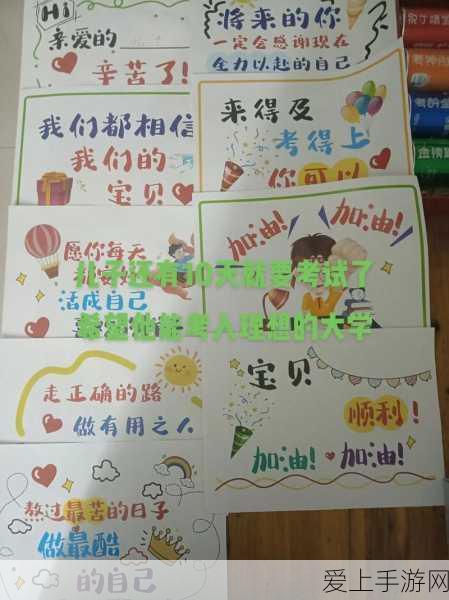 Hi
亲爱的
辛苦了!
将来的你
一定会感谢现在
全力以赴的自己
我们都相信
我们的
宝贝
来得及
考得上
你可以
愿你每天
活成自己
加油!
加油!
儿子还有10天就要考试了
希望他能考入理想的大学
走正确的路
做有用之人
宝贝
顺利!
加油!
加油!
熬过最苦的日子
做最酷
的自己
爱上手游网